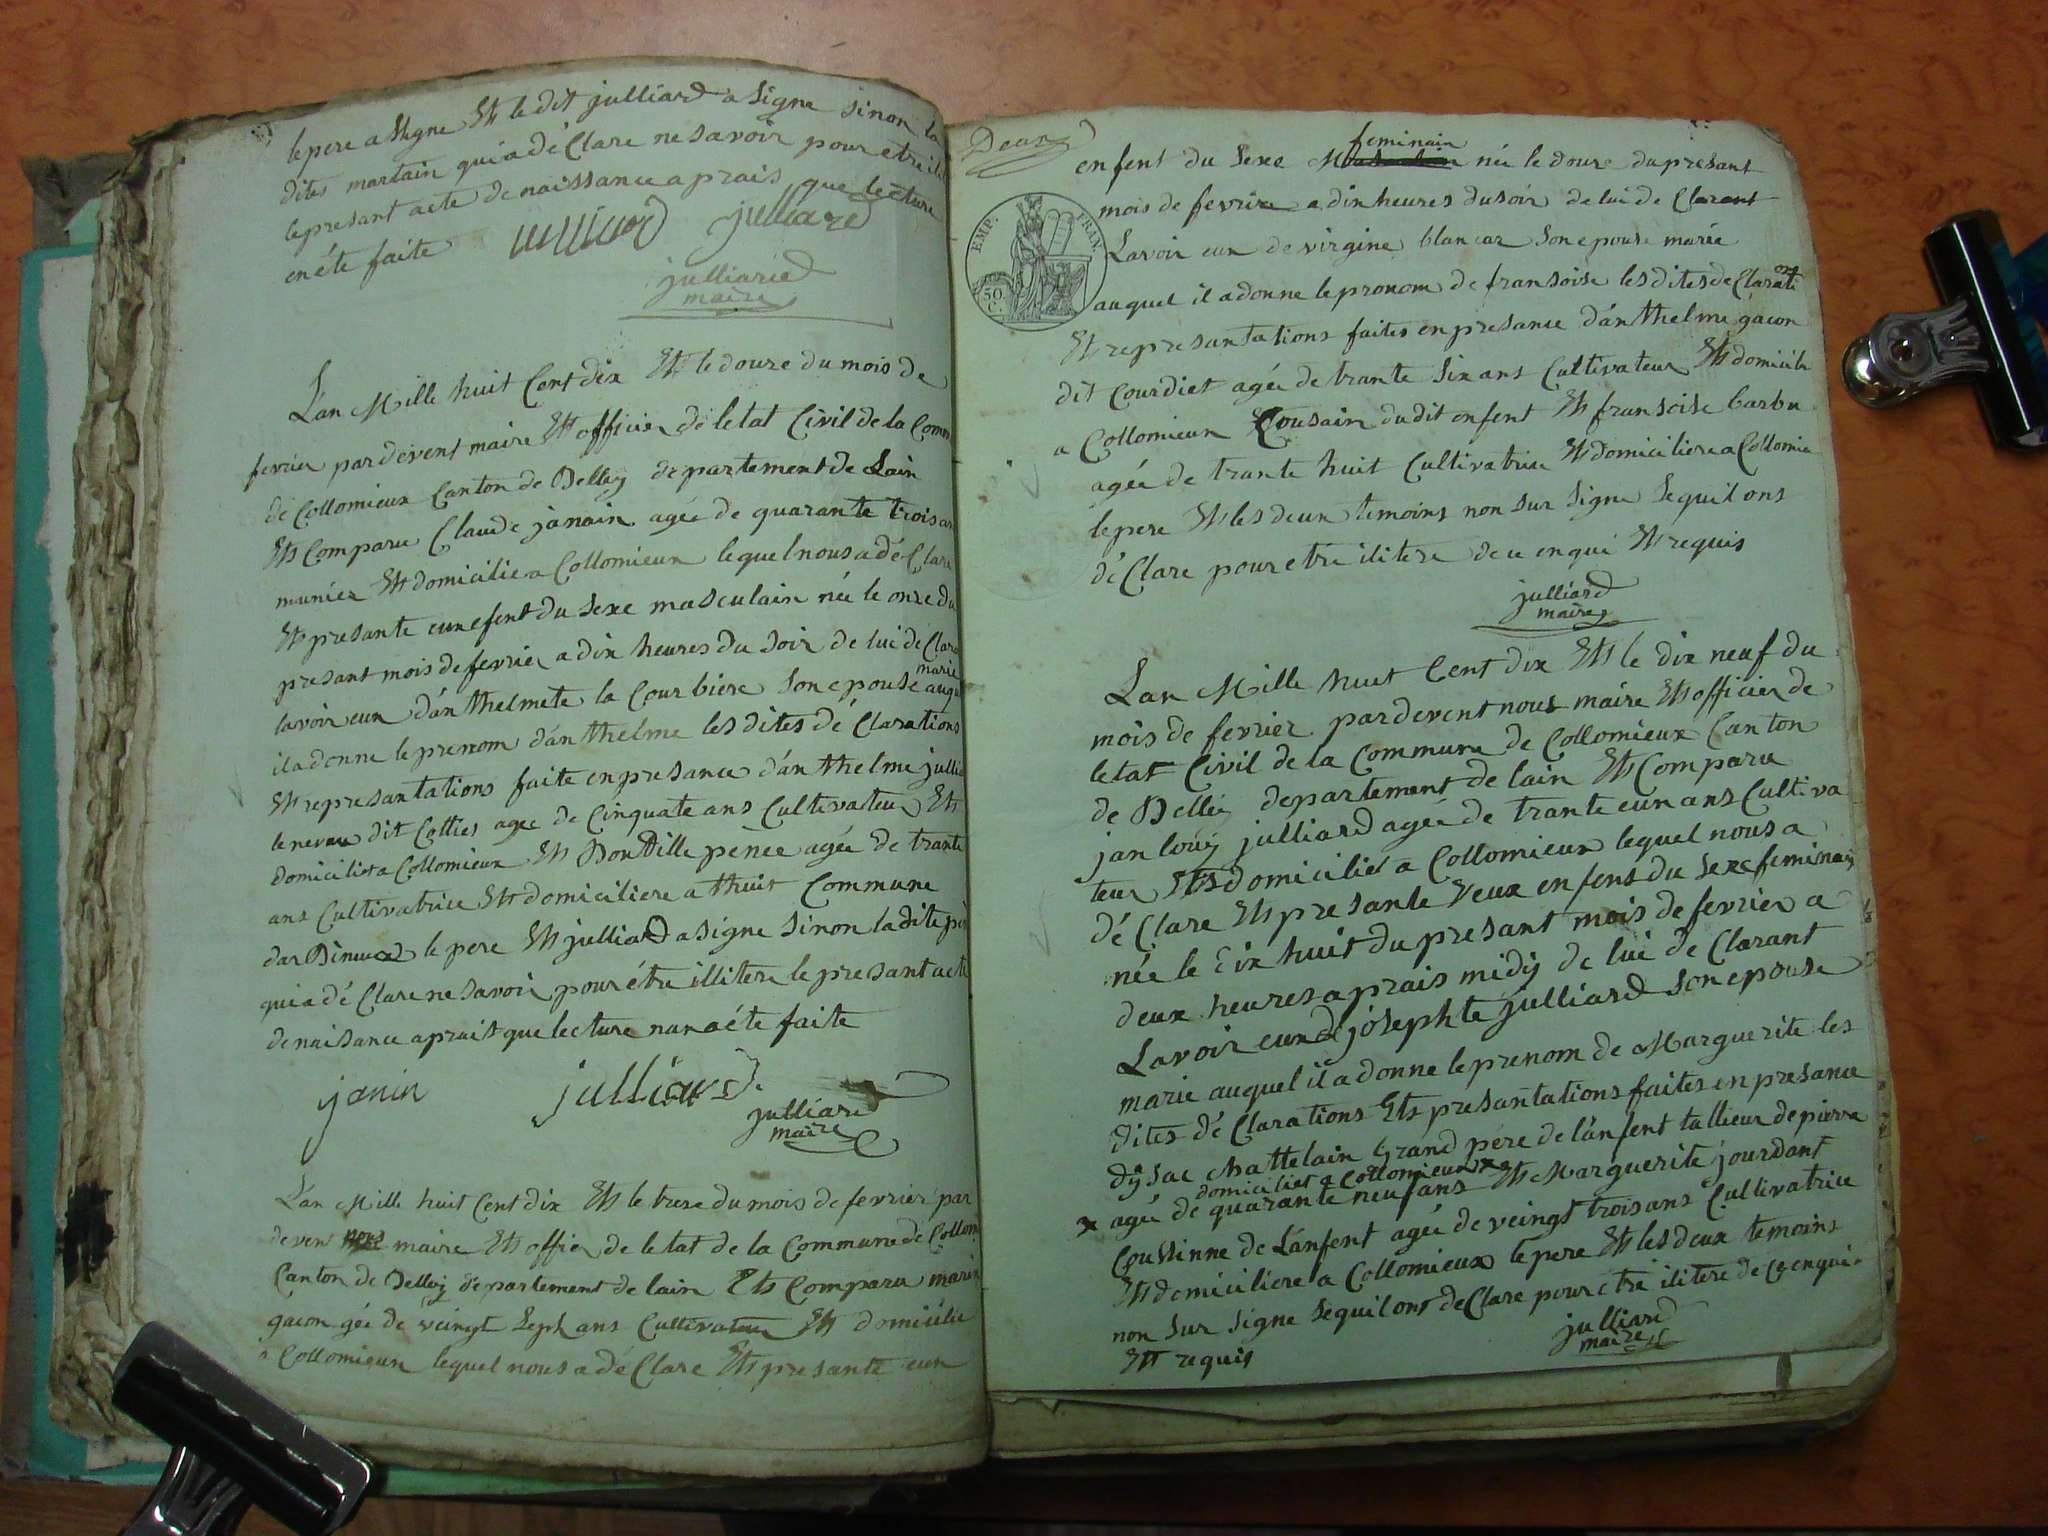 le pere a signe Et le dit julliard a signe sinon la
dites martain qui a dé Clare ne savoir pour etre ili
le presant acte de naissance aprais que lecture
en éte faite julliard
julliard
maire
L'an Mille huit Cent dix Et le douze du mois de
fevrier par devent maire Et officier de letat Civil de la Comm
de Collomieux Canton de Belley departement de Lain
Et Comparu Claude janain agée de quarante trois an
munier Et domicilie a Collomieux lequel nous a dé Clare
Et presante eun efent du sexe masculain née le onze du
presant mois de fevrier a dix heures du soir de lui de Clara
marie
lavoir eun d'anthelmete la Courbiere son epouse auqu
il a donne le prenom d'anthelme les dites dé Clarations
Et represantations faite en presance d'anthelme julli
le neveu dit Cotties agee de Cinquate ans Cultivateur Et
domicilié a Collomieux Et Bontille penée agée de trante
ans Cultivatrice Et domiciliere a thuit Commune
le pere Et julliard a signe sinon la dite pe
qui a dé Clare ne savoir pour étre illitere le presant acte
de naisance aprait que lecture nan a éte faite
janin julliard
julliard
maire
L'an Mille huit Cent dix Et le treze du mois de fevrier par
deven nous maire Et offier de letat de la Commune de Collom
Canton de Belley departement de lain Et Comparu marin
gacon gée de veingt Sept ans Cultivateur Et domicilie
a Collomieux lequel nous a dé Clare Et presante eun
Deux
EMP. FRAN.
50 C.
feminain
enfent du sexe née le douze du presant
mois de fevrier a dix heures du soir de lui de Clarant
Lavoir eun de virgine blancaz son epouse marée
auquel il a donne le pronom de fransoise les dites de Clarati
Et represantations faites en presance d'anthelme gacon
dit Courdiet agée de trante six ans Cultivateur Et domicilie
a Collomieux Cousain du dit enfent Et fransoise barbu
agée de trante huit Cultivatrice Et domiciliere a Collomie
le pere Et les deux temoins non sur signe se quil ons
dé Clare pour etre ilitere de ce enqui Et requis
julliard
maire
Lan Mille huit Cent dix Et le dix neuf du
mois de fevrier par devent nous maire Et officier de
letat Civil de la Commune de Collomieux Canton
de Belley departement de lain Et Comparu
jan louy julliard agée de trante eun ans Cultiva
teur Et domicilié a Collomieux lequel nous a
dé Clare Et presante deux enfens du sexe feminain
née le dix huit du presant mois de fevrier a
deux heures aprais midy de lui de Clarant
Lavoir eun de josephte julliard son epouse
marie auquel il a donne le prenom de Marguerite les
dites dé Clarations Et presantations faites en presance
dysac chattelain grand pére de l'anfent tallieur de pierre
domiciliet a Collomieux x
x agée de quarante neuf ans Et Marguerite jourdant
Coussinne de L'anfent agée de veingt trois ans Cultivatrice
Et domiciliere a Collomieux le pere Et les deux temoins
non sur signe se quil ont de Clare pour etre ilitere de ce enqui
Et requis
julliard
maire